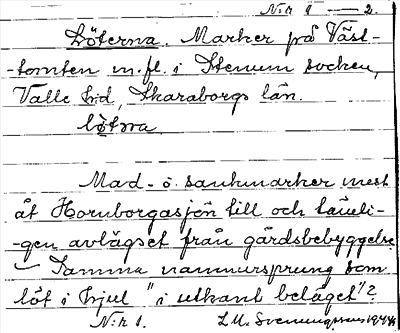 N:r 1 — 2.
Löterna. Marker på Väst-
-tomten m.fl. i Stenum socken,
Valle hd, Skaraborgs län.
lö̀tṇa
Mad- o. sankmarker mest
åt Hornborgasjön till och täml-
-gen avlägset från gårdsbebyggelse
Samma namnursprung som
löt i hjul "i utkant beläget"?
N:r 1. L. M. Svenungsson 1944